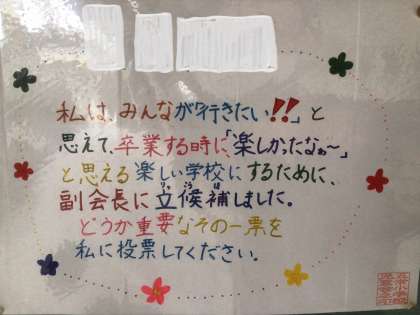 私は、みんなが「行きたい!!」と
思えて、卒業する時に、「楽しかったなぁ〜」
と思える楽しい学校にするために、
副会長に立候補しました。
りっこうほ
どうか重要なその一票を
私に投票してください。